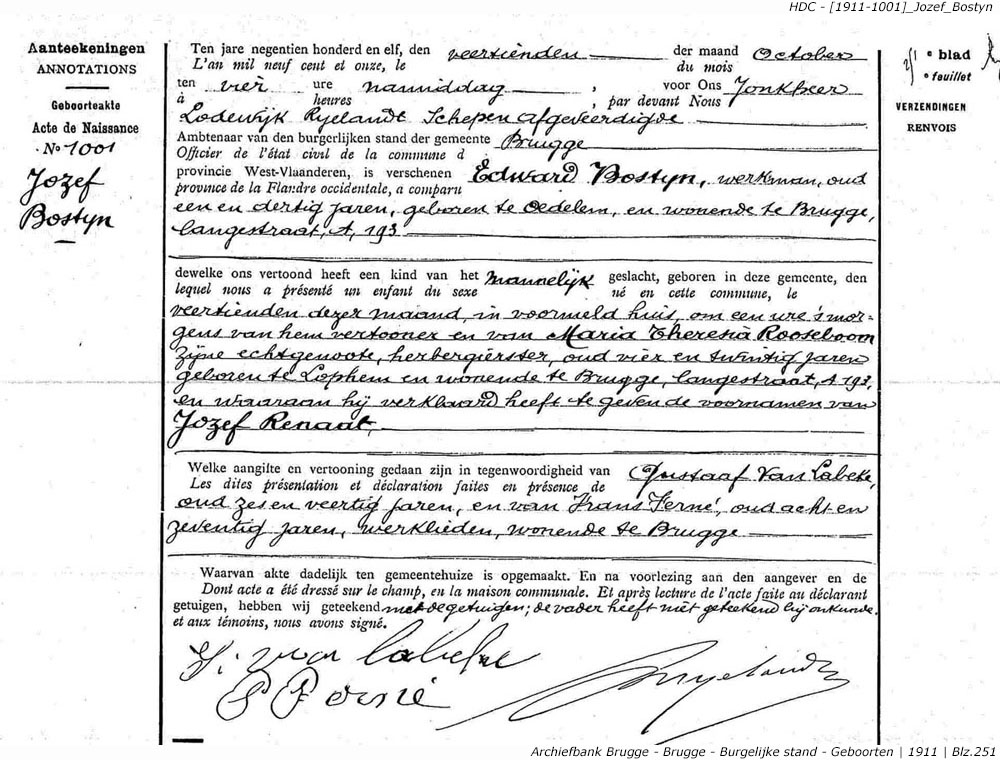 HDC - [1911-1001]_Jozef_Bostyn
Aanteekeningen
ANNOTATIONS
Geboorteakte
Acte de Naissance
No 1001
Jozef
Bostyn
Ten jare negentien honderd en elf, den veertienden der maand October
L'an mil neuf cent et onze, le du mois
ten vier ure namiddag, voor Ons Jonkheer
à heures, par devant Nous
Lodewijk Ryelandt Schepen afgeveerdigde
Ambtenaar van den burgerlijken stand der gemeente Brugge
Officier de l'état civil de la commune d
provincie West-Vlaanderen, is verschenen Edward Bostyn, werkman, oud
province de la Flandre occidentale, a comparu
een en dertig jaren, geboren te Oedelem, en wonende te Brugge,
langestraat, A, 193
dewelke ons vertoond heeft een kind van het mannelijk geslacht, geboren in deze gemeente, den
lequel nous a présenté un enfant du sexe né en cette commune, le
veertienden dezer maand, in voormeld huis, om een ure 's mor=
gens van hem vertooner en van Maria Theresia Rooseboom
zijne echtgenoote, herbergierster, oud vier en twintig jaren
geboren te Lophem en wonende te Brugge, langestraat, A 193,
en waaraan hij verklaard heeft te geven de voornamen van
Jozef Renaat,
Welke aangifte en vertooning gedaan zijn in tegenwoordigheid van Gustaaf Van Labeke,
Les dites présentation et déclaration faites en présence de
oud zes en veertig jaren, en van Frans Ferné, oud acht en
zeventig jaren, werklieden, wonende te Brugge
Waarvan akte dadelijk ten gemeentehuize is opgemaakt. En na voorlezing aan den aangever en de
Dont acte a été dressé sur le champ, en la maison communale. Et après lecture de l'acte faite au déclarant
getuigen, hebben wij geteekend met de getuigen; de vader heeft niet geteekend bij onkunde.
et aux témoins, nous avons signé.
van Labeke
Ryelandt
e blad
e feuillet
VERZENDINGEN
RENVOIS
Archiefbank Brugge - Brugge - Burgelijke stand - Geboorten | 1911 | Blz.251